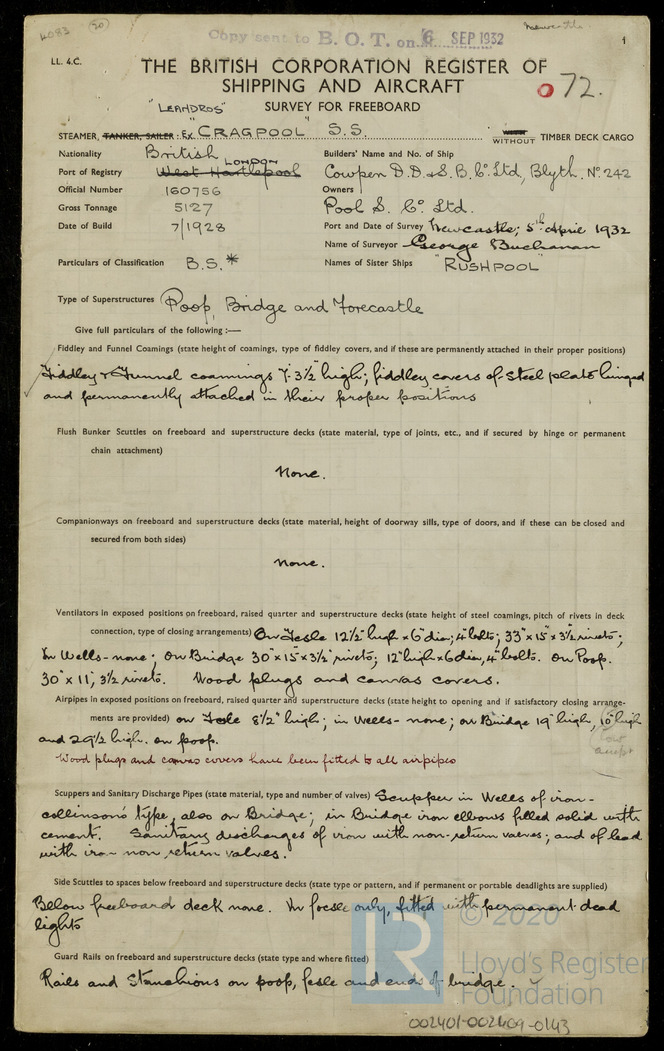 4083
(20)
Copy sent to B.O.T. on 6 SEP 1932
Newcastle.
1
LL. 4.C.
THE BRITISH CORPORATION REGISTER OF
SHIPPING AND AIRCRAFT
072.
"LEANDROS"
SURVEY FOR FREEBOARD
STEAMER, TANKER, SAILER : Ex "CRAGPOOL" S.S. WITHOUT TIMBER DECK CARGO
Nationality British Builders' Name and No. of Ship
LONDON
Port of Registry West Hartlepool Cowpen D.D. & S.B. Co. Ltd, Blyth. No. 242
Official Number 160756 Owners
Gross Tonnage 5127 Pool S. Co. Ltd.
Date of Build 7/1928 Port and Date of Survey Newcastle; 5th April 1932
Name of Surveyor George Buchanan
Particulars of Classification B.S.* Names of Sister Ships "RUSHPOOL"
Type of Superstructures Poop, Bridge and Forecastle
Give full particulars of the following :—
Fiddley and Funnel Coamings (state height of coamings, type of fiddley covers, and if these are permanently attached in their proper positions)
Fiddley & Funnel coamings 7'-3½" high; fiddley covers of steel plate hinged
and permanently attached in their proper positions
Flush Bunker Scuttles on freeboard and superstructure decks (state material, type of joints, etc., and if secured by hinge or permanent
chain attachment)
None.
Companionways on freeboard and superstructure decks (state material, height of doorway sills, type of doors, and if these can be closed and
secured from both sides)
None.
Ventilators in exposed positions on freeboard, raised quarter and superstructure decks (state height of steel coamings, pitch of rivets in deck
connection, type of closing arrangements) On Focsle 12½" high x 6" dia; 4" bolts; 33" x 15" x 3½" rivets;
In Wells - none; On Bridge 30" x 15" x 3½" rivets; 12" high x 6" dia, 4" bolts. On Poop.
30" x 11", 3½ rivets. Wood plugs and canvas covers.
Airpipes in exposed positions on freeboard, raised quarter and superstructure decks (state height to opening and if satisfactory closing arrange-
ments are provided) on Focsle 8½" high; in Wells - none; on Bridge 19" high, 10" high
and 29½ high. on poop.
accept
Wood plugs and canvas covers have been fitted to all airpipes
Scuppers and Sanitary Discharge Pipes (state material, type and number of valves) Scupper in Wells of iron -
collinson's type, also on Bridge; in Bridge iron elbows filled solid with
cement. Sanitary discharges of iron with non-return valves; and of lead
with iron non return valves.
Side Scuttles to spaces below freeboard and superstructure decks (state type or pattern, and if permanent or portable deadlights are supplied)
Below freeboard deck none. In focsle only, fitted with permanent dead
lights
Guard Rails on freeboard and superstructure decks (state type and where fitted)
Rails and Stanchions on poop, focsle and ends of bridge.
© 2020
Lloyd's Register
Foundation
LR
002401-002409-0143